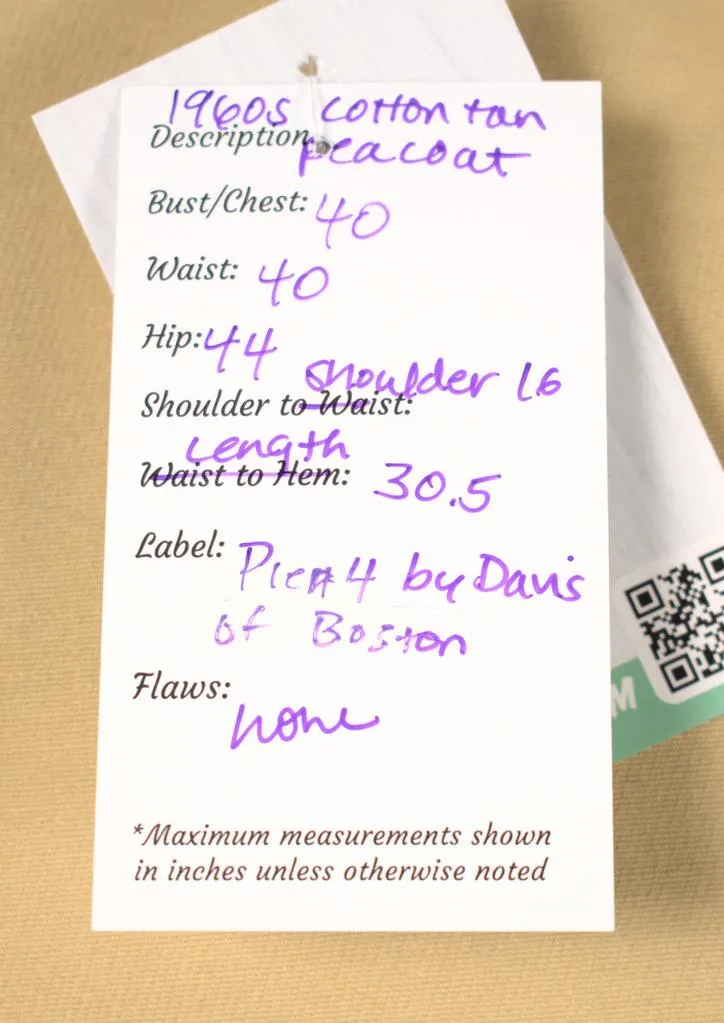 1960s cotton tan
Description peacoat
Bust/Chest: 40
Waist: 40
Hip: 44
shoulder 16
Shoulder to Waist:
Length
Waist to Hem: 30.5
Label: Pier 4 by Davis
of Boston
Flaws:
none
*Maximum measurements shown
in inches unless otherwise noted
M